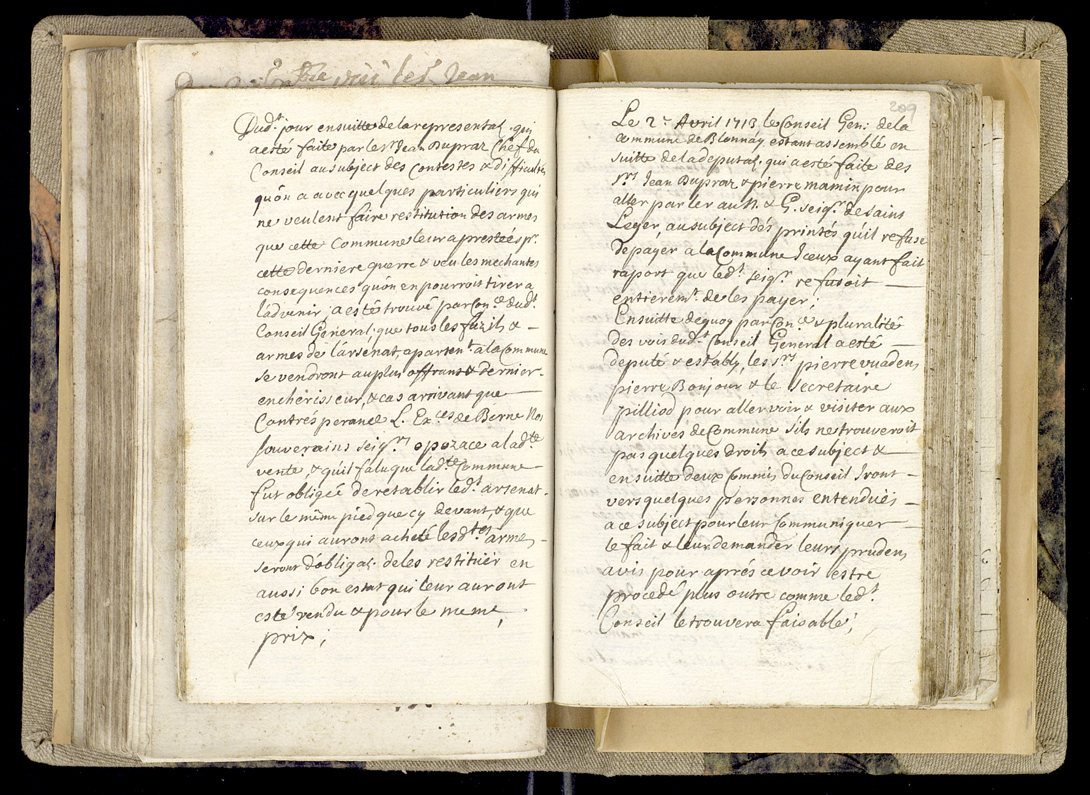 Dud.t jour ensuitte de la representa.õ, qui
a esté faite par les.r Jean Dupraz Chef du
Conseil au subject des contestes & difficultés
qu'on a avec quelques particuliers qui
ne veulent faire restitution des armes
que cette Commune leur a prestées p.r
cette derniere guerre & veu les mechantes
consequences qu'on en pourroit tirer a
l'advenir, a esté trouvé par Con.ce dud.t
Conseil General, que tous les fuzils & —
armes de l'arsenat, aparten.t a la Commune
se vendront au plus offrant & dernier —
encherisseur, & cas arrivant que —
Contr'esperance L. Ex.ces de Berne Nos
souverains seig.rs opozace a lad.te
vente, & qu'il falu que lad.te Commune —
fut obligée de retablir led.t arsenat —
sur le même pied que cy devant, & que
ceux qui auront acheté lesd.tes armes —
seront d'obliga.õ de les restituer en
aussi bon estat qui leur auront
esté vendu & pour le meme,
prix;
209
Le 2.e Avril 1713 le Conseil Gen: de la
commune de Blonnay estant assemblé en
suitte de la deputa.õ qui a esté faite des
s.rs Jean Dupraz & pierre mamin pour
aller parler au N. & G. seig.r de saint
Leger, au subject des printés qu'il refuse
de payer a la Commune Iceux ayant fait
raport que led.t seig.r refusoit —
entierem.t de les payer;
Ensuitte de quoy par Con.ce & pluralité
des voix dud.t Conseil General a esté —
deputé & estably, les s.rs pierre vuadens
pierre Bonjour & le secretaire
pilliod pour aller voir & visiter aux
archives de Commune s'ils ne trouveroit
pas quelques droits a ce subject & —
ensuitte deux Commis du Conseil Iront —
vers quelques personnes entendues —
a ce subject pour leur Communiquer —
le fait & leur demander leurs prudens
avis pour aprés ce voir estre
procedé plus outre comme led.t
Conseil le trouvera faisable;